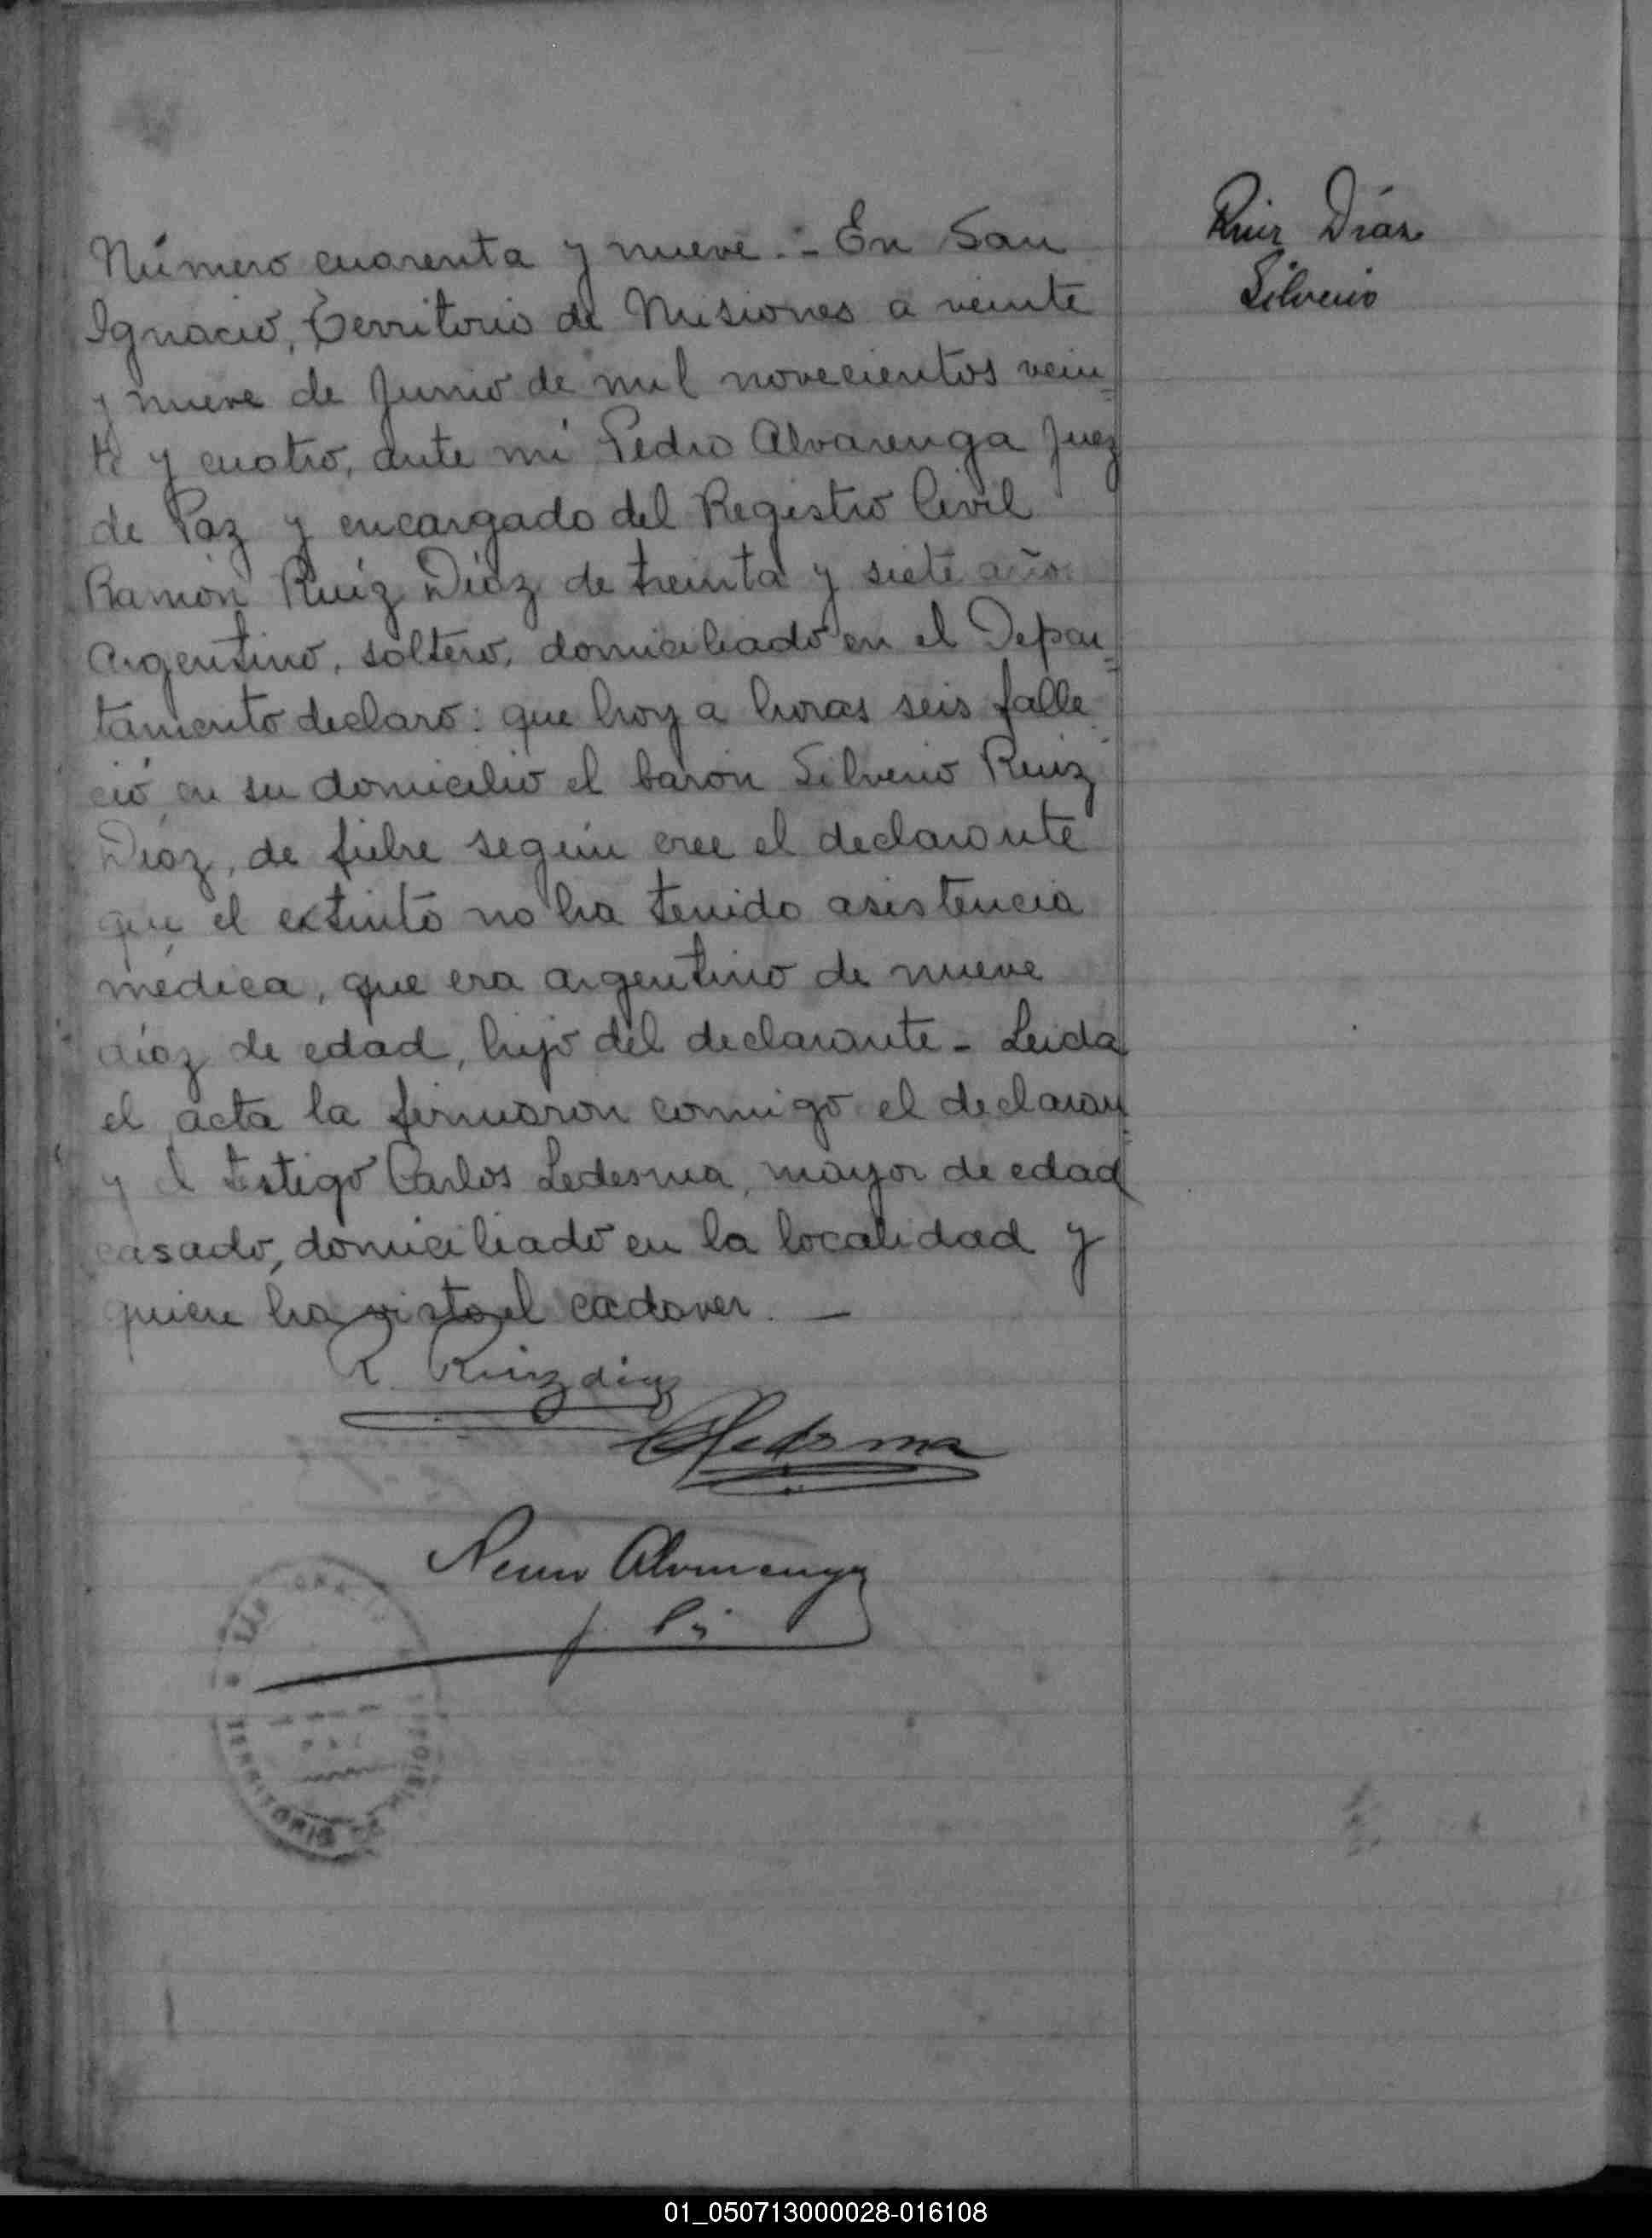 Número cuarenta y nueve.- En San
Ignacio, Territorio de Misiones a veinte
y nueve de Junio de mil novecientos vein=
te y cuatro, ante mi Pedro Alvarenga Juez
de Paz y encargado del Registro Civil
Ramón Ruiz Díaz de treinta y siete años
Argentino, soltero, domiciliado en el Depar=
tamento declaro: que hoy a horas seis falle
ció en su domicilio el baron Silverio Ruiz
Díaz, de fiebre según cree el declarante
que el extinto no ha tenido asistencia
médica, que era argentino de nueve
díaz de edad, hijo del declarante - Leida
el acta la firmaron conmigo el declaran=
y el testigo Carlos Ledesma, mayor de edad
casado, domiciliado en la localidad y
quien ha visto el cadaver. —
R. Ruiz diaz
CLedesma
Alvarenga
Ruiz Díaz
Silverio
TERRITORIO
01_050713000028-016108